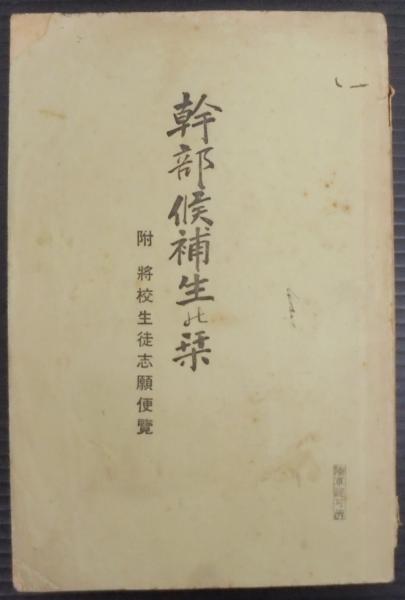 幹部候補生の栞
附 將校生徒志願便覽